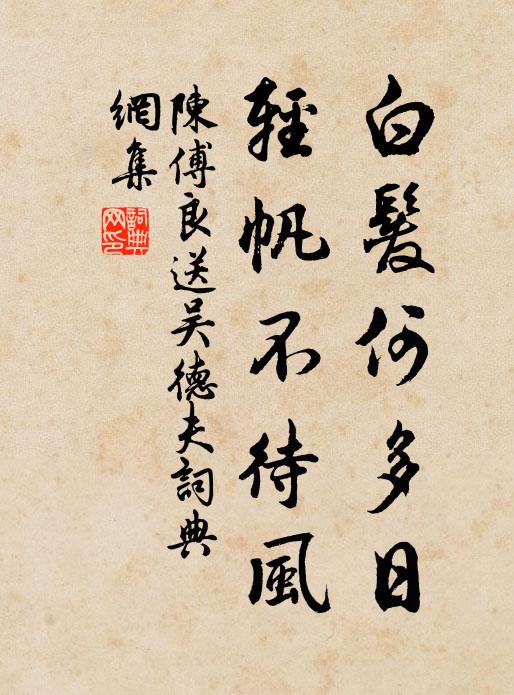 白髮何多日
輕帆不待風
陳傅良送吴德夫詞典
網集
詞典
网印